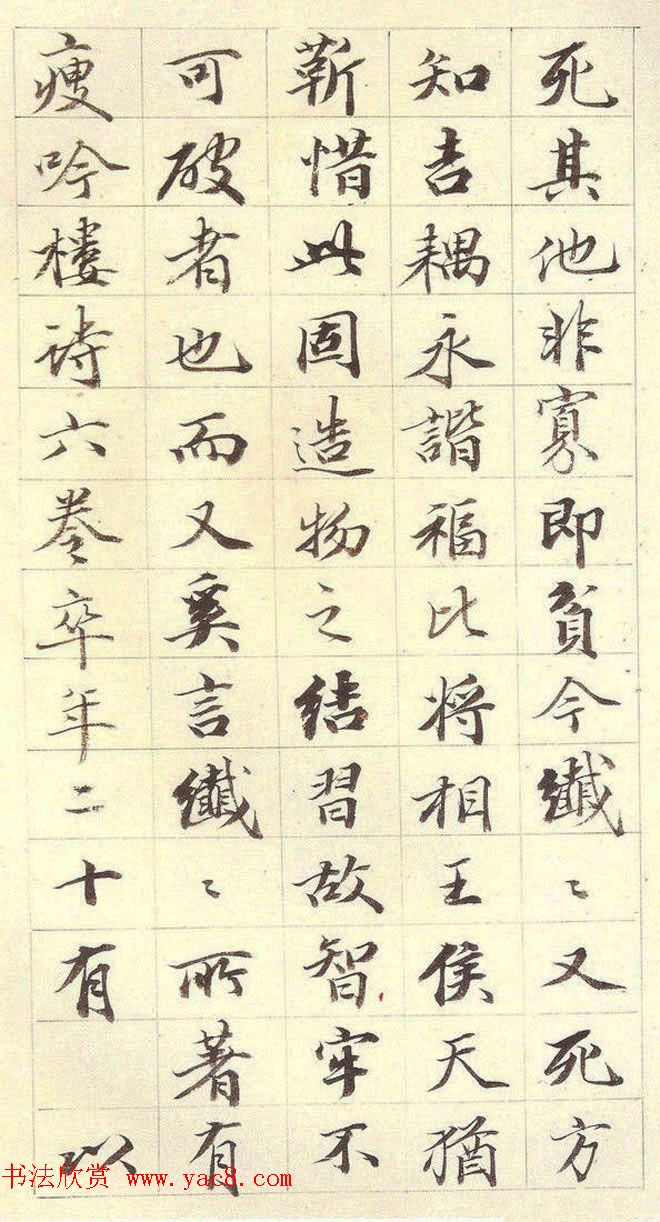 死其他非寡即貧今纖〻又死方
知吉耦永諧福比将相王侯天猶
靳惜此固造物之結習故智牢不
可破者也而又奚言纖〻所著有
瘦吟樓诗六卷卒年二十有 以
书法欣赏 www.yac8.com